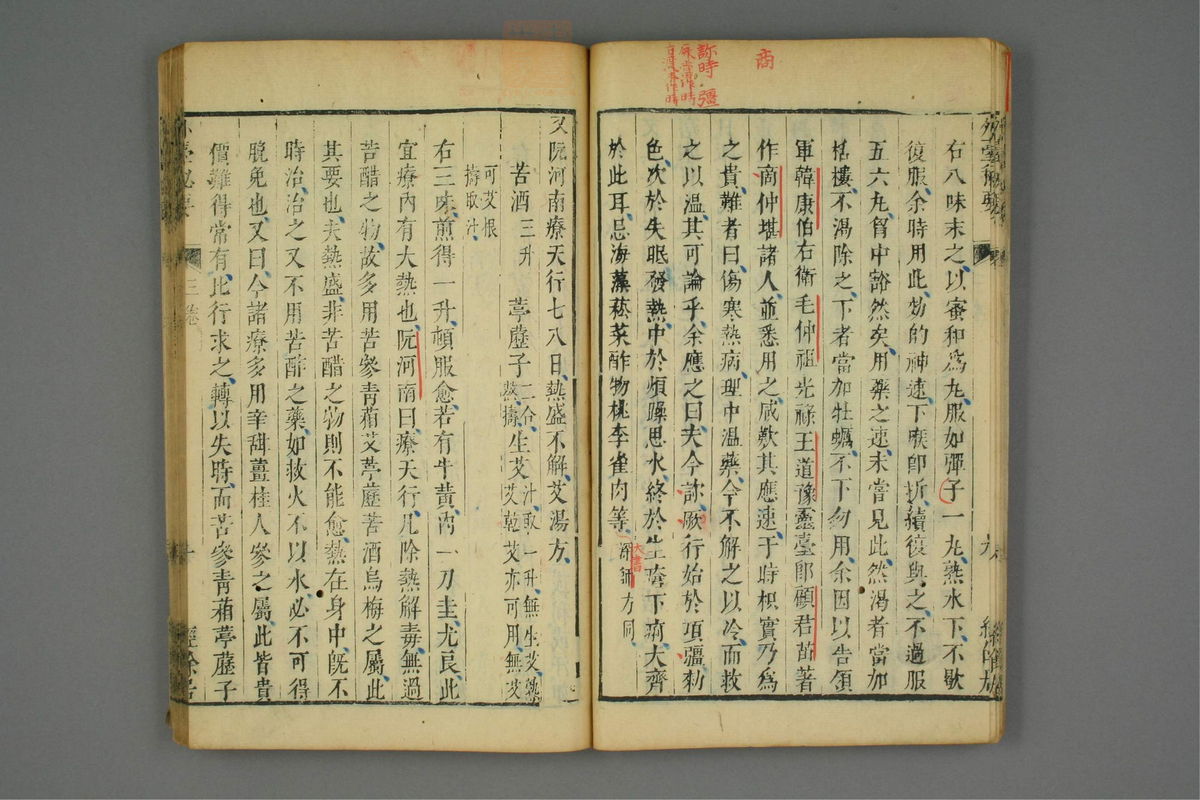 商
弥時·彊
外臺秘要
右八味末之以蜜和為丸服如彈子一丸熱水下不歇
復服余時用此効的神速下喉即折續復與之不過服
五六丸胷中豁然矣用藥之速未嘗見此然渴者當加
栝樓不渴除之下者當加牡蠣不下勿用余因以告領
軍韓康伯右衛毛仲祖光祿王道豫靈臺郎顧君苗著
作商仲堪諸人並悉用之咸歎其應速于時枳實乃為
之貴難者曰傷寒熱病理中温藥今不解之以冷而救
之以温其可論乎余應之曰夫今沴厥行始於項彊勑
色次於失眠發熱中於煩躁思水終於生瘡下痢大齊
於此耳忌海藻菘菜酢物桃李雀肉等深師方同
大書
又阮河南療天行七八日熱盛不解艾湯方
苦酒三升 葶藶子二合熬擣生艾汁取一升無生艾熟艾乾艾亦可用無艾
可艾根擣取汁
右三味煎得一升頓服愈若有牛黄内一刀圭尤良此
宜療內有大熱也阮河南曰療天行凡除熱解毒無過
苦醋之物故多用苦參青葙艾葶藶苦酒烏梅之屬此
其要也夫熱盛非苦醋之物則不能愈熱在身中既不
時治治之又不用苦酢之藥如救火不以水必不可得
脫免也又曰今諸療多用辛甜薑桂人參之屬此皆貴
價難得常有比行求之轉以失時而苦參青葙葶藶子
外臺秘要 三卷 十 經餘居